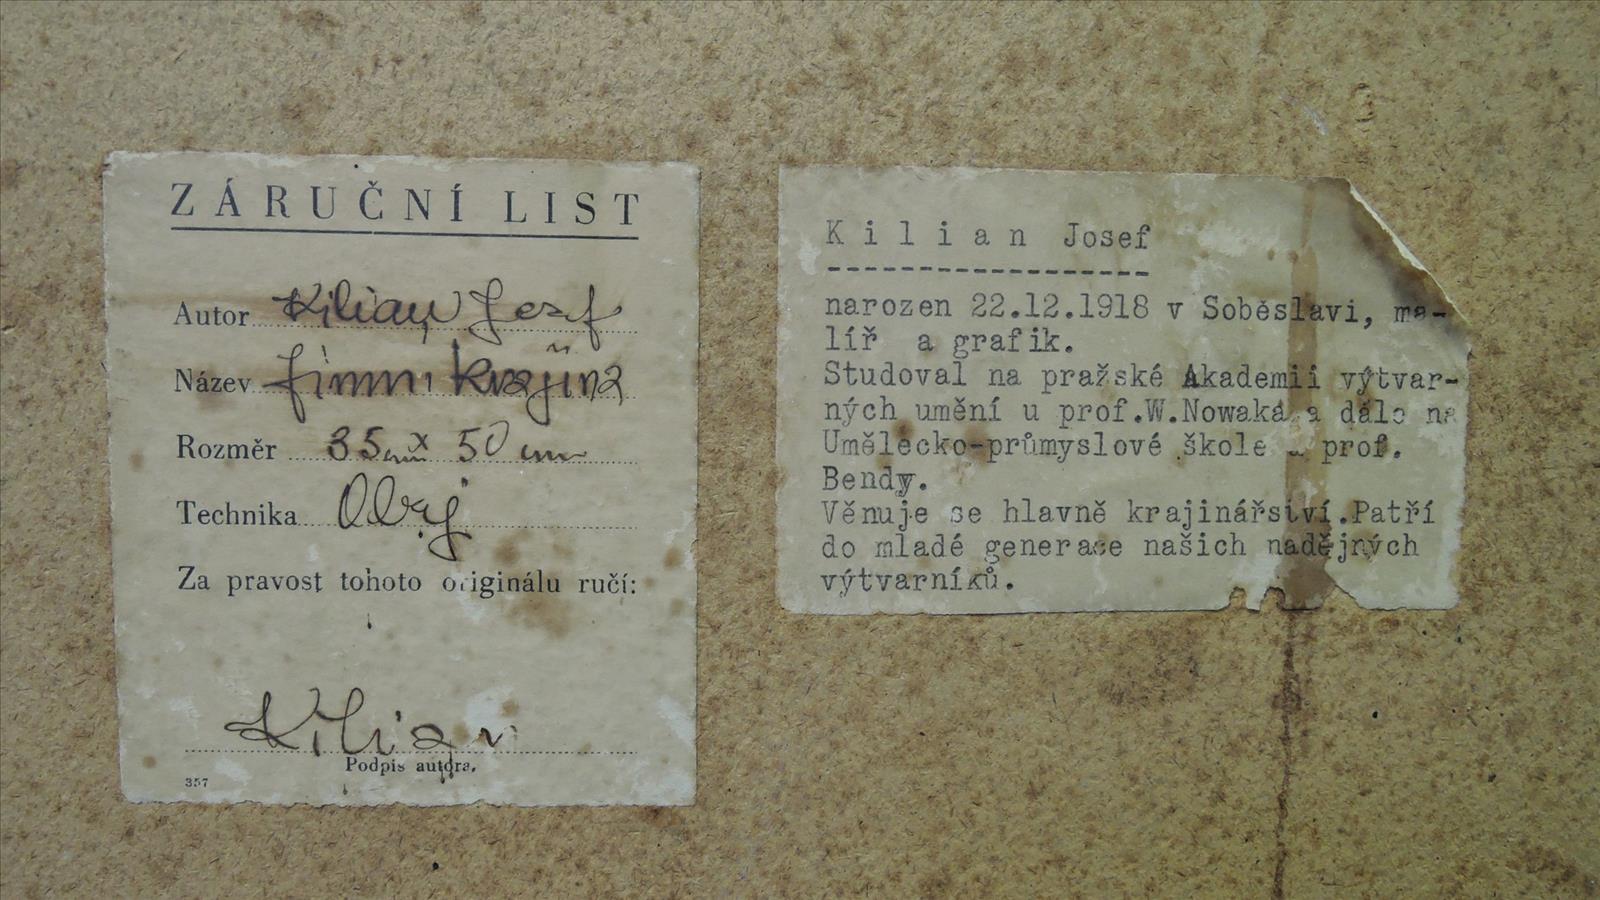 ZÁRUČNÍ LIST
Autor Kilian Josef
Název Zimní krajina
Rozměr 35cm x 50 cm
Technika Olej
Za pravost tohoto originálu ručí:
Kilian
Podpis autora.
357
Kilian Josef
------------------
narozen 22.12.1918 v Soběslavi, ma-
líř a grafik.
Studoval na pražské Akademii výtvar-
ných umění u prof.W.Nowaka a dále na
Umělecko-průmyslové škole u prof.
Bendy.
Věnuje se hlavně krajinářství.Patří
do mladé generace našich nadějných
výtvarníků.